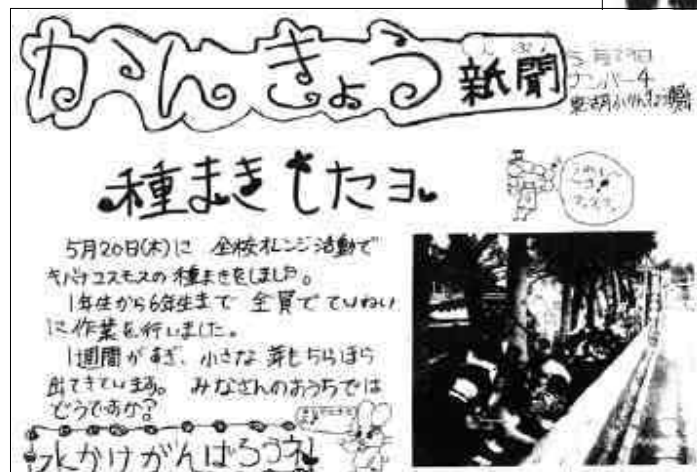 かんきょう新聞
5月29日
ナンバー4
種まきしたヨ
5月20日(木)に 全校オレンジ活動で
キバナコスモスの種まきをしました。
1年生から6年生まで 全員で ていねい
に作業を行いました。
1週間がすぎ、小さな 芽もちらほら
出てきています。 みなさんのおうちでは
どうですか?
水かけがんばろうネ!